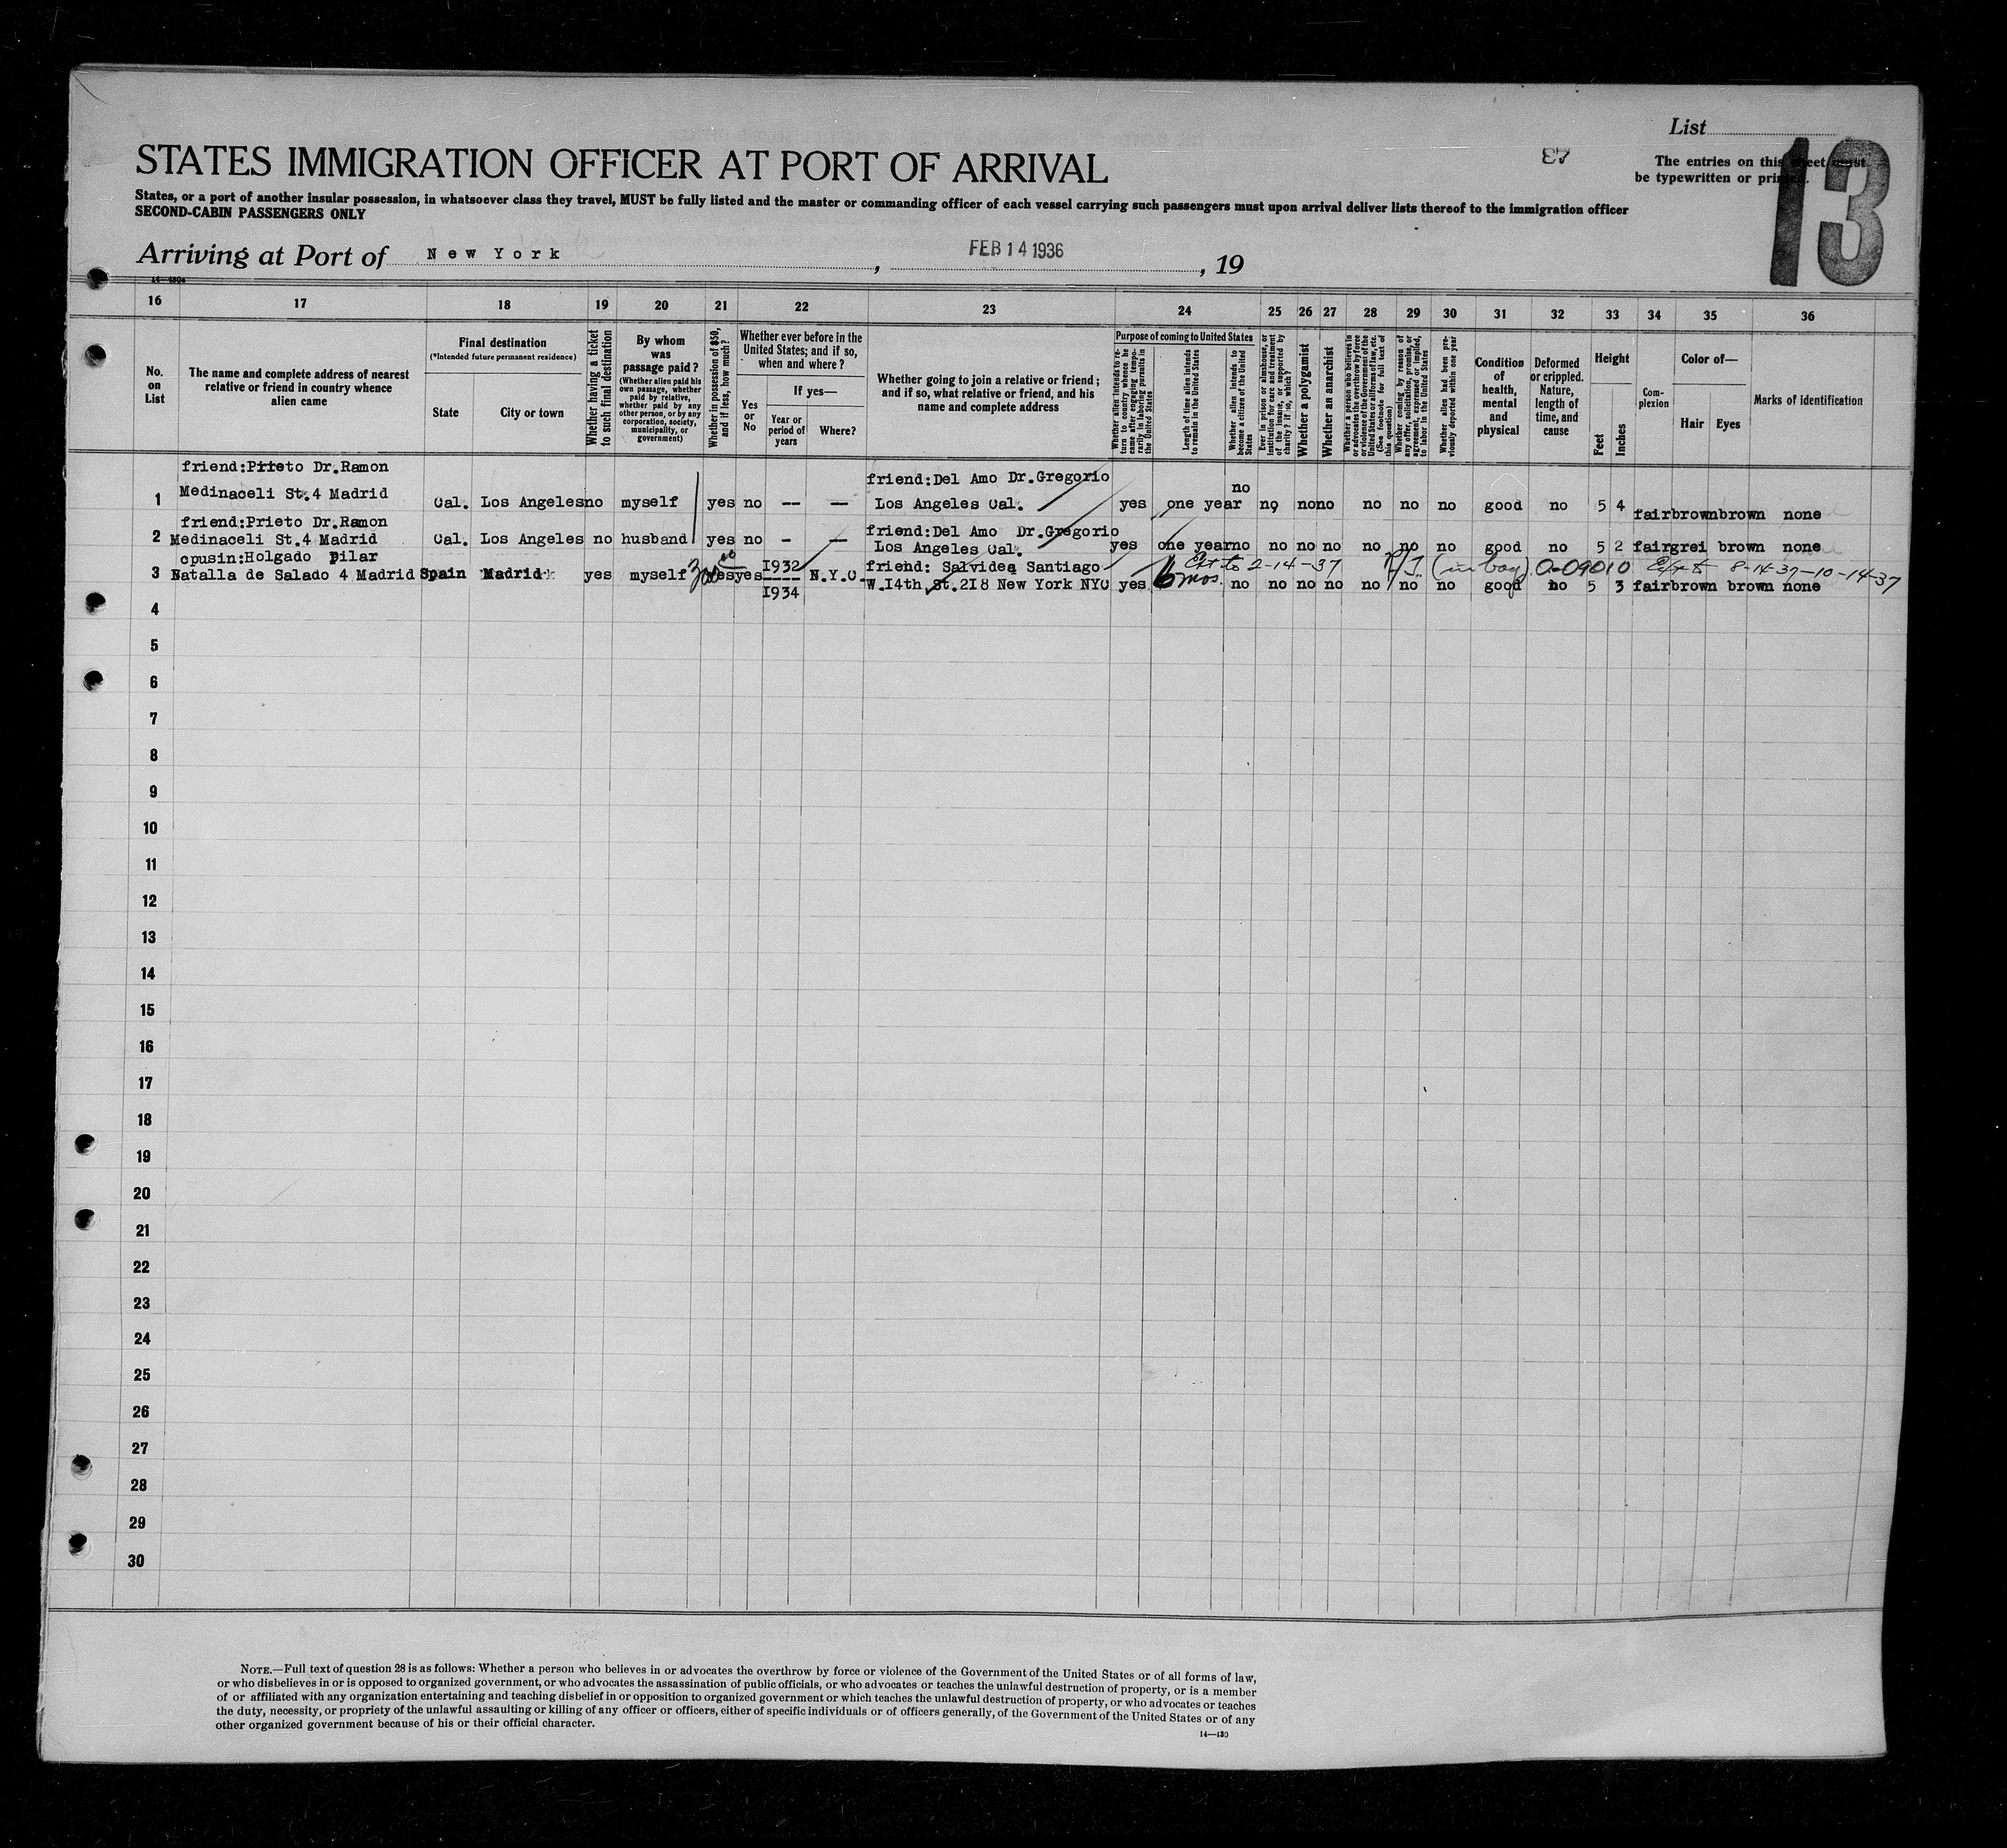 List
13
87
The entries on this sheet must
be typewritten or printed.
STATES IMMIGRATION OFFICER AT PORT OF ARRIVAL
States, or a port of another insular possession, in whatsoever class they travel, MUST be fully listed and the master or commanding officer of each vessel carrying such passengers must upon arrival deliver lists thereof to the immigration officer
SECOND-CABIN PASSENGERS ONLY
Arriving at Port of New York, FEB 14 1936, 19
14—480a
16 17 18 19 20 21 22 23 24 25 26 27 28 29 30 31 32 33 34 35 36
No. on List
The name and complete address of nearest relative or friend in country whence alien came
Final destination
(*Intended future permanent residence)
State
City or town
Whether having a ticket to such final destination
By whom was passage paid?
(Whether alien paid his own passage, whether paid by relative, whether paid by any other person, or by any corporation, society, municipality, or government)
Whether in possession of $50, and if less, how much?
Whether ever before in the United States; and if so, when and where?
Yes or No
If yes—
Year or period of years
Where?
Whether going to join a relative or friend; and if so, what relative or friend, and his name and complete address
Purpose of coming to United States
Whether alien intends to return to country whence he came after engaging temporarily in laboring pursuits in the United States
Length of time alien intends to remain in the United States
Whether alien intends to become a citizen of the United States
Ever in prison or almshouse, or institution for care and treatment of the insane, or supported by charity? if so, which?
Whether a polygamist
Whether an anarchist
Whether a person who believes in or advocates the overthrow by force or violence of the Government of the United States or all forms of law, etc. (See footnote for full text of this question)
Whether coming by reason of any offer, solicitation, promise, or agreement, expressed or implied, to labor in the United States
Whether alien had been previously deported within one year
Condition of health, mental and physical
Deformed or crippled. Nature, length of time, and cause
Height
Feet
Inches
Complexion
Color of—
Hair
Eyes
Marks of identification
friend:Prieto Dr.Ramon friend:Del Amo Dr.Gregorio
1 Medinaceli St.4 Madrid Cal. Los Angeles no myself yes no -- — Los Angeles Cal. yes one year no no no no no no no good no 5 4 fair brown brown none
friend:Prieto Dr.Ramon friend:Del Amo Dr.Gregorio
2 Medinaceli St.4 Madrid Cal. Los Angeles no husband yes no - — Los Angeles Cal. yes one year no no no no no no no good no 5 2 fair grei brown none
cousin:Holgado Pilar 1932 friend: Salvidea Santiago Ext to 2-14-37 (in bag) 0-09010 Ext to 8-14-37-10-14-37
3 Batalla de Salado 4 Madrid Spain Madrid yes myself yes yes ---- N.Y.C. W.14th St.218 New York NYC yes 6 mos. no no no no no no no good no 5 3 fair brown brown none
1934
4
5
6
7
8
9
10
11
12
13
14
15
16
17
18
19
20
21
22
23
24
25
26
27
28
29
30
NOTE.—Full text of question 28 is as follows: Whether a person who believes in or advocates the overthrow by force or violence of the Government of the United States or of all forms of law,
or who disbelieves in or is opposed to organized government, or who advocates the assassination of public officials, or who advocates or teaches the unlawful destruction of property, or is a member
of or affiliated with any organization entertaining and teaching disbelief in or opposition to organized government or which teaches the unlawful destruction of property, or who advocates or teaches
the duty, necessity, or propriety of the unlawful assaulting or killing of any officer or officers, either of specific individuals or of officers generally, of the Government of the United States or of any
other organized government because of his or their official character.
14—430